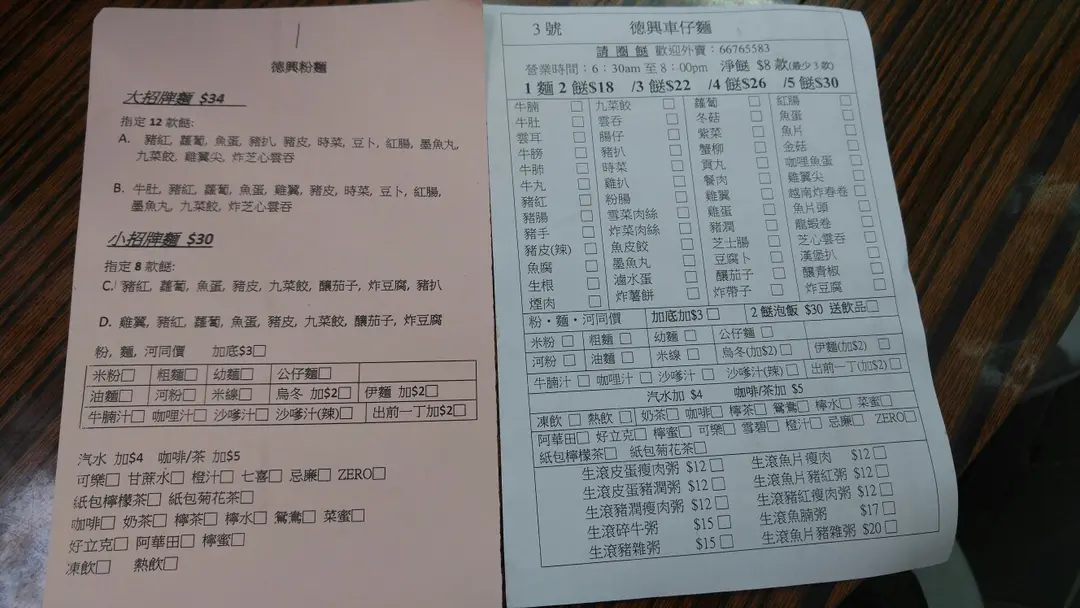 德興粉麵
大招牌麵 $34
指定 12 款餸:
A. 豬紅, 蘿蔔, 魚蛋, 豬扒, 豬皮, 時菜, 豆卜, 紅腸, 墨魚丸,
九菜餃, 雞翼尖, 炸芝心雲吞
B. 牛肚, 豬紅, 蘿蔔, 魚蛋, 雞翼, 豬皮, 時菜, 豆卜, 紅腸,
墨魚丸, 九菜餃, 炸芝心雲吞
小招牌麵 $30
指定 8 款餸:
C. 豬紅, 蘿蔔, 魚蛋, 豬皮, 九菜餃, 釀茄子, 炸豆腐, 豬扒
D. 雞翼, 豬紅, 蘿蔔, 魚蛋, 豬皮, 九菜餃, 釀茄子, 炸豆腐
粉, 麵, 河同價 加底$3□
米粉□ 粗麵□ 幼麵□ 公仔麵□
油麵□ 河粉□ 米線□ 烏冬 加$2□ 伊麵 加$2□
牛腩汁□ 咖哩汁□ 沙嗲汁□ 沙嗲汁(辣)□ 出前一丁加$2□
汽水 加$4 咖啡/茶 加$5
可樂□ 甘蔗水□ 橙汁□ 七喜□ 忌廉□ ZERO□
紙包檸檬茶□ 紙包菊花茶□
咖啡□ 奶茶□ 檸茶□ 檸水□ 鴛鴦□ 菜蜜□
好立克□ 阿華田□ 檸蜜□
凍飲□ 熱飲□
3 號 德興車仔麵
請 圈 餸 歡迎外賣：66765583
營業時間：6：30am 至 8：00pm 淨餸 $8 款(最少 3 款)
1 麵 2 餸$18 /3 餸$22 /4 餸$26 /5 餸$30
牛腩 □ 九菜餃 □ 蘿蔔 □ 紅腸 □
牛肚 □ 雲吞 □ 冬菇 □ 魚蛋 □
雲耳 □ 腸仔 □ 紫菜 □ 魚片 □
牛膀 □ 豬扒 □ 蟹柳 □ 金菇 □
牛肺 □ 時菜 □ 貢丸 □ 咖哩魚蛋 □
牛丸 □ 雞扒 □ 餐肉 □ 雞翼尖 □
豬紅 □ 粉腸 □ 雞翼 □ 越南炸春卷 □
豬腸 □ 雪菜肉絲 □ 雞蛋 □ 魚片頭 □
豬手 □ 炸菜肉絲 □ 豬潤 □ 龍蝦卷 □
豬皮(辣) □ 魚皮餃 □ 芝士腸 □ 芝心雲吞 □
魚腐 □ 墨魚丸 □ 豆腐卜 □ 漢堡扒 □
生根 □ 滷水蛋 □ 釀茄子 □ 釀青椒 □
煙肉 □ 炸薯餅 □ 炸帶子 □ 炸豆腐 □
粉・麵・河同價 加底加$3 □ 2 餸泡飯 $30 送飲品□
米粉 □ 粗麵 □ 幼麵 □ 公仔麵 □
河粉 □ 油麵 □ 米線 □ 烏冬(加$2) □ 伊麵(加$2) □
牛腩汁 □ 咖哩汁 □ 沙嗲汁 □ 沙嗲汁(辣)□ 出前一丁(加$2)□
汽水加 $4 咖啡/茶加 $5
凍飲 □ 熱飲 □ 奶茶□ 咖啡□ 檸茶□ 鴛鴦□ 檸水□ 菜蜜□
阿華田□ 好立克□ 檸蜜□ 可樂□ 雪碧□ 橙汁□ 忌廉□ ZERO□
紙包檸檬茶□ 紙包菊花茶□
生滾皮蛋瘦肉粥 $12 □ 生滾魚片瘦肉 $12 □
生滾皮蛋豬潤粥 $12 □ 生滾魚片豬紅粥 $12 □
生滾豬潤瘦肉粥 $12 □ 生滾豬紅瘦肉粥 $12 □
生滾碎牛粥 $15 □ 生滾魚腩粥 $17 □
生滾豬雜粥 $15 □ 生滾魚片豬雜粥 $20 □